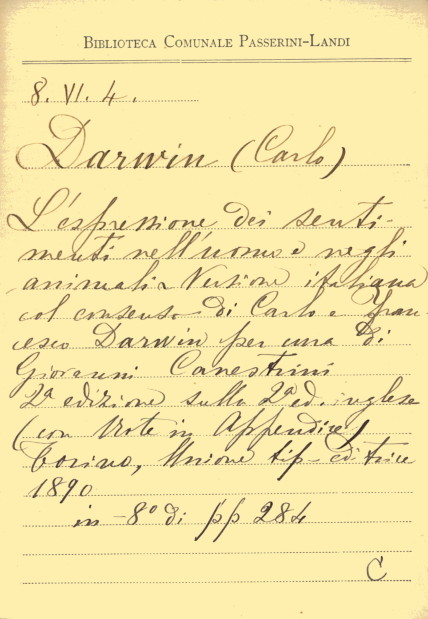 BIBLIOTECA COMUNALE PASSERINI-LANDI
8. VI. 4.
Darwin (Carlo)
L'espressione dei senti-
menti nell'uomo e negli
animali. Versione italiana
col consenso di Carlo e Fran-
cesco Darwin per cura di
Giovanni Canestrini
2ª edizione sulla 2ª ed. inglese
(con Note in Appendice)
Torino, Unione tip-editrice
1890
in-8º di pp 284
C